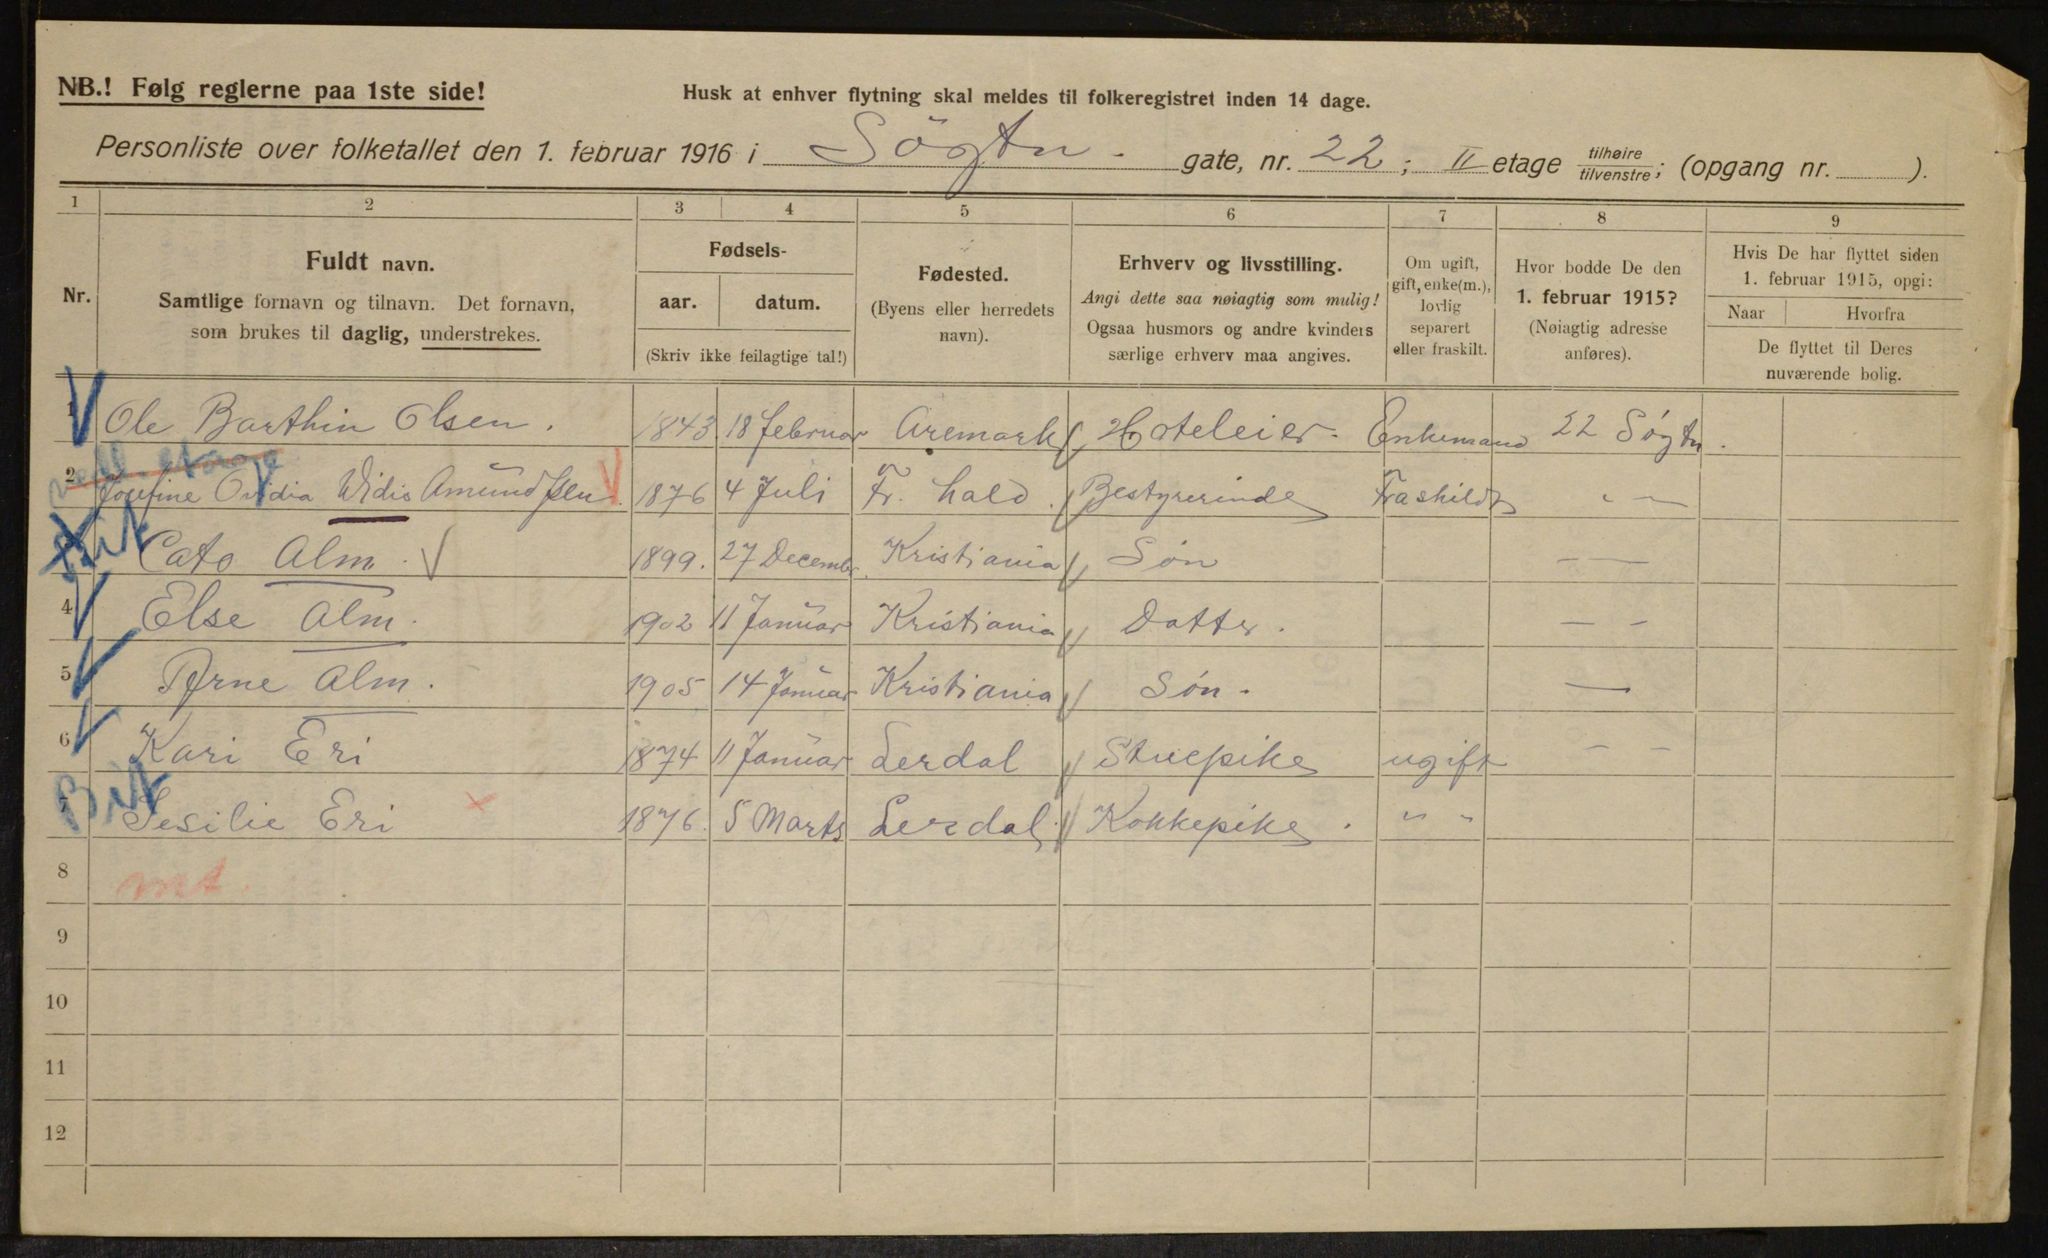 NB.! Følg reglerne paa 1ste side!
Husk at enhver flytning skal meldes til folkeregistret inden 14 dage.
Personliste over folketallet den 1. februar 1916 i Søgtn. gate, nr. 22; II etage tilhøire tilvenstre; (opgang nr. ).
1 2 3 4 5 6 7 8 9
Nr.
Fuldt navn.
Samtlige fornavn og tilnavn. Det fornavn,
som brukes til daglig, understrekes.
Fødsels-
aar. datum.
(Skriv ikke feilagtige tal!)
Fødested.
(Byens eller herredets
navn).
Erhverv og livsstilling.
Angi dette saa nøiagtig som mulig!
Ogsaa husmors og andre kvinders
særlige erhverv maa angives.
Om ugift,
gift, enke(m.),
lovlig
separert
eller fraskilt.
Hvor bodde De den
1. februar 1915?
(Nøiagtig adresse
anføres).
Hvis De har flyttet siden
1. februar 1915, opgi:
Naar Hvorfra
De flyttet til Deres
nuværende bolig.
1 Ole Barthin Olsen. 1843 18 februar Aremark Hoteleier. Enkemand 22 Søgtn.
etage
2 Josefine Ovidia Widis Amundsen. 1876 4 Juli Fr. hald. Bestyrerinde Fraskildt " —
Cato Alm. 1899. 27 Decembr. Kristiania Søn — —
4 Else Alm. 1902 11 Januar Kristiania Datter. — -
5 Arne Alm. 1905 14 Januar Kristiania Søn. —
6 Kari Eri 1874 11 Januar Lerdal Stuepike ugift - -
7 Sesilie Eri 1876. 5 Marts Lerdal. Kokkepike. " "
8
9
10
11
12